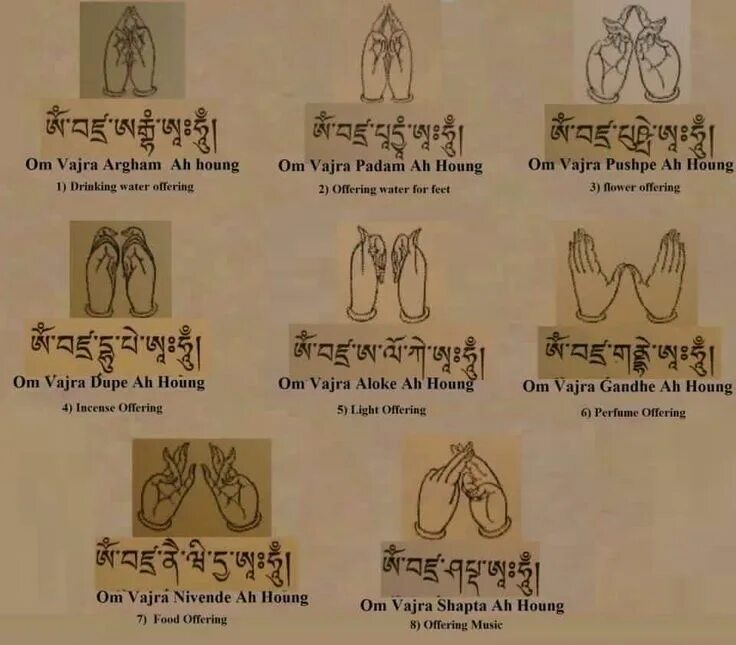 ཨོཾ་བཛྲ་ཨརྒྷཾ་ཨཱཿཧཱུྃ།
Om Vajra Argham Ah houng
1) Drinking water offering
ཨོཾ་བཛྲ་པཱདྱཾ་ཨཱཿཧཱུྃ།
Om Vajra Padam Ah Houng
2) Offering water for feet
ཨོཾ་བཛྲ་པུཥྤེ་ཨཱཿཧཱུྃ།
Om Vajra Pushpe Ah Houng
3) flower offering
ཨོཾ་བཛྲ་དྷཱུ་པེ་ཨཱཿཧཱུྃ།
Om Vajra Dupe Ah Houng
4) Incense Offering
ཨོཾ་བཛྲ་ཨ་ལོ་ཀེ་ཨཱཿཧཱུྃ།
Om Vajra Aloke Ah Houng
5) Light Offering
ཨོཾ་བཛྲ་གནྡྷེ་ཨཱཿཧཱུྃ།
Om Vajra Gandhe Ah Houng
6) Perfume Offering
ཨོཾ་བཛྲ་ནཻ་ཝི་དྱ་ཨཱཿཧཱུྃ།
Om Vajra Nivende Ah Houng
7) Food Offering
ཨོཾ་བཛྲ་ཤཔྡ་ཨཱཿཧཱུྃ།
Om Vajra Shapta Ah Houng
8) Offering Music